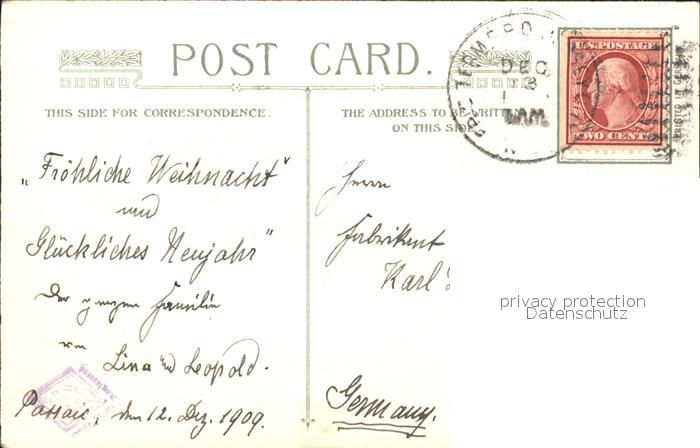 POST CARD.
THIS SIDE FOR CORRESPONDENCE.
„Fröhliche Weihnacht"
und
Glückliches Neujahr"
der ganzen Familie
von Lina und Leopold.
Passaic, den 12. Dez. 1909.
THE ADDRESS TO BE WRITTEN
ON THIS SIDE
DEC
13
AM
U.S. POSTAGE
TWO CENTS
Herrn
Fabrikant
Karl
privacy protection
Datenschutz
Germany.